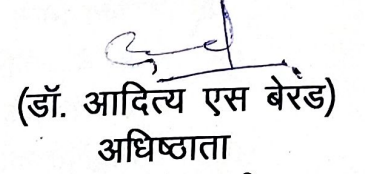 (डॉ. आदित्य एस बेरड)
अधिष्ठाता